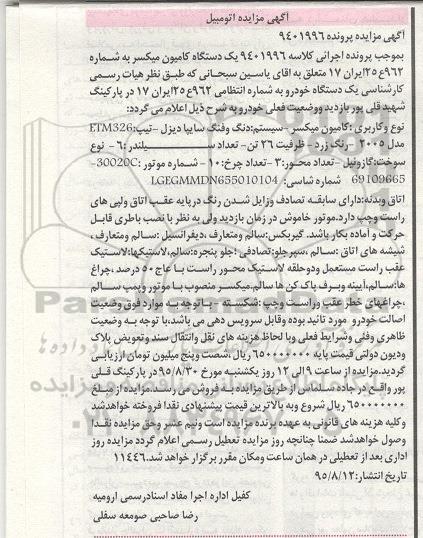 آگهی مزایده اتومبیل
آگهی مزایده پرونده ۹۴۰۱۹۹۶
بموجب پرونده اجرائی کلاسه ۹۴۰۱۹۹۶ یک دستگاه کامیون میکسر به شماره
۹۶۲ع۲۵ایران ۱۷ متعلق به اقای یاسین سبحانی که طبق نظر هیات رسمی
کارشناسی یک دستگاه خودرو به شماره انتظامی ۹۶۲ع۲۵ایران ۱۷ در پارکینگ
شهید قلی پور بازدید ووضعیت فعلی خودرو به شرح ذیل اعلام می گردد:
نوع وکاربری :کامیون میکسر – سیستم:دنگ وفنگ سایپا دیزل –تیپ:ETM326
مدل ۲۰۰۵ –رنگ زرد – ظرفیت ۲۶ تن– تعداد سیلندر :۶– نوع
سوخت:گازوئیل –تعداد محور:۳ –تعداد چرخ:۱۰ – شماره موتور :30020C-
69109665 شماره شاسی: LGEGMMDN655010104
اتاق وبدنه:دارای سابقه تصادف وزایل شدن رنگ درپایه عقب اتاق ولبی های
راست وچپ دارد.موتور خاموش در زمان بازدید ولی به نظر با نصب باطری قابل
حرکت و آماده بکار باشد. گیربکس:سالم ومتعارف ،دیفرانسیل :سالم ومتعارف ،
شیشه های اتاق :سالم ،سپرجلو:تصادفی ؛جلو پنجره:سالم،لاستیکها:لاستیک
عقب راست مستعمل ودوحلقه لاستیک محور راست با عاج ۵۰ درصد ،چراغ
ها:سالم،آیینه وبرف پاک کن ها سالم.میکسر منصوب با موتور وپمپ سالم
،چراغهای خطر عقب وراست وچپ :شکسته – با توجه به موارد فوق وضعیت
اصالت خودرو مورد تائید بوده وقابل سرویس دهی می باشد،با توجه به وضعیت
ظاهری وفنی وشرایط فعلی وبا لحاظ هزینه های نقل وانتقال سند وتعویض پلاک
ودیون دولتی قیمت پایه ۶۵۰۰۰۰۰۰۰ ریال،شصت وپنج میلیون تومان ارزیابی
گردید.مزایده از ساعت ۹ الی ۱۲ روز یکشنبه مورخ ۹۵/۸/۳۰ در پارکینگ قلی
پور واقع در جاده سلماس از طریق مزایده به فروش می رسد.مزایده از مبلغ
۶۵۰۰۰۰۰۰۰ ریال شروع وبه بالاترین قیمت پیشنهادی نقدا فروخته خواهدشد
و کلیه هزینه های قانونی به عهده برنده مزایده است ونیم عشر وحق مزایده نقدا
وصول خواهدشد ضمنا چنانچه روز مزایده تعطیل رسمی اعلام گردد مزایده روز
اداری بعد از تعطیلی در همان ساعت ومکان مقرر برگزار خواهد شد.۱۱۴۴۶
تاریخ انتشار:۹۵/۸/۱۲
کفیل اداره اجرا مفاد اسنادرسمی ارومیه
رضا صاحبی صومعه سفلی